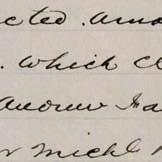 cted. Amo
. Which Cl
Andrew Ha
r Michl